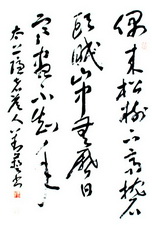 偶来松樹下高枕石
頭眠山中無曆日
寒盡不知年
太上隱者答人